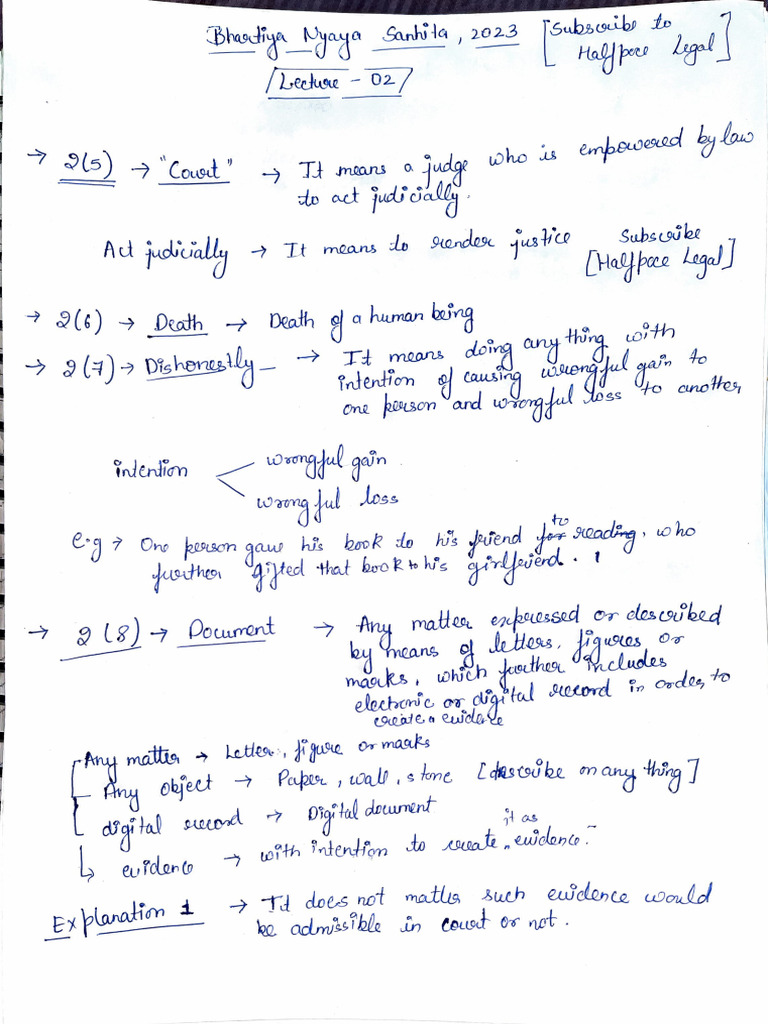 Bhartiya Nyaya Sanhita, 2023 [Subscribe to
Halfpace Legal]
Lecture - 02
→ 2(5) → "Court" → It means a judge who is empowered by law
to act judicially.
Act judicially → It means to render justice Subscribe
[Halfpace Legal]
→ 2(6) → Death → Death of a human being
→ 2(7) → Dishonestly → It means doing any thing with
intention of causing wrongful gain to
one person and wrongful loss to another
intention wrongful gain
wrongful loss
e.g → One person gave his book to his friend to reading, who
further gifted that book to his girlfriend.
→ 2(8) → Document → Any matter expressed or described
by means of letters, figures or
marks, which further includes
electronic or digital record in order to
create a evidence
Any matter → Letter, figure or marks
Any object → Paper, wall, stone [describe on any thing]
digital record → Digital document
evidence → with intention to create it as evidence.
Explanation 1 → It does not matter such evidence would
be admissible in court or not.